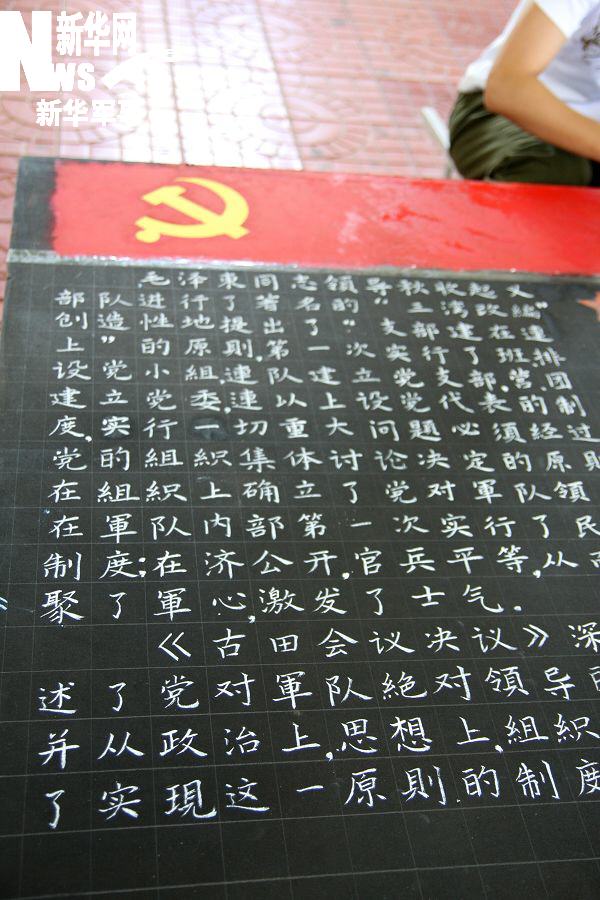 新华网
NWS
新华军
毛泽東同志領导秋收起义
部队進行了著名的“三湾改編”
创造性地提出了“支部建在連
上”的原則,第一次实行了班、排
設党小組,連队建立党支部,营、团
建立党委,連以上設党代表的制
度,实行一切重大问題必须经过
党的組織集体讨论决定的原則
在組織上确立了党对軍队領
在軍队内部第一次实行了民
制度;在济公开,官兵平等,从而
聚了軍心,激发了士气.
《古田会议决议》深
述了党对軍队絶对領导
并从政治上,思想上,組织
了实現这一原則的制度